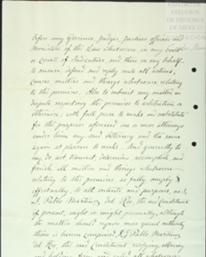 before any Governor, Judges, Justices officers and
Ministers of the Law whatsoever in any Court
or Courts of Judicature, and there on my behalf
to answer, defend and reply unto all actions,
causes matters and things whatsoever relating
to the premises. Also to submit any matter in
dispute respecting the premises to arbitration or
otherwise, with full power to make and substitute
for the purposes aforesaid one or more attorneys
under him my said Attorney and the same
again at pleasure to revoke. And generally to
say, do act transact, determine accomplish and
finish all matters and things whatsoever
relating to the premises, as fully, amply &
effectually, to all intents and purposes, as I,
Pablo Martinez del Rio, the said Constituent
if present, ought or might personally, although
the matter should require more special authority
than is herein comprised, I Pablo Martinez
del Rio, the said Constituent ratifying allowing
and